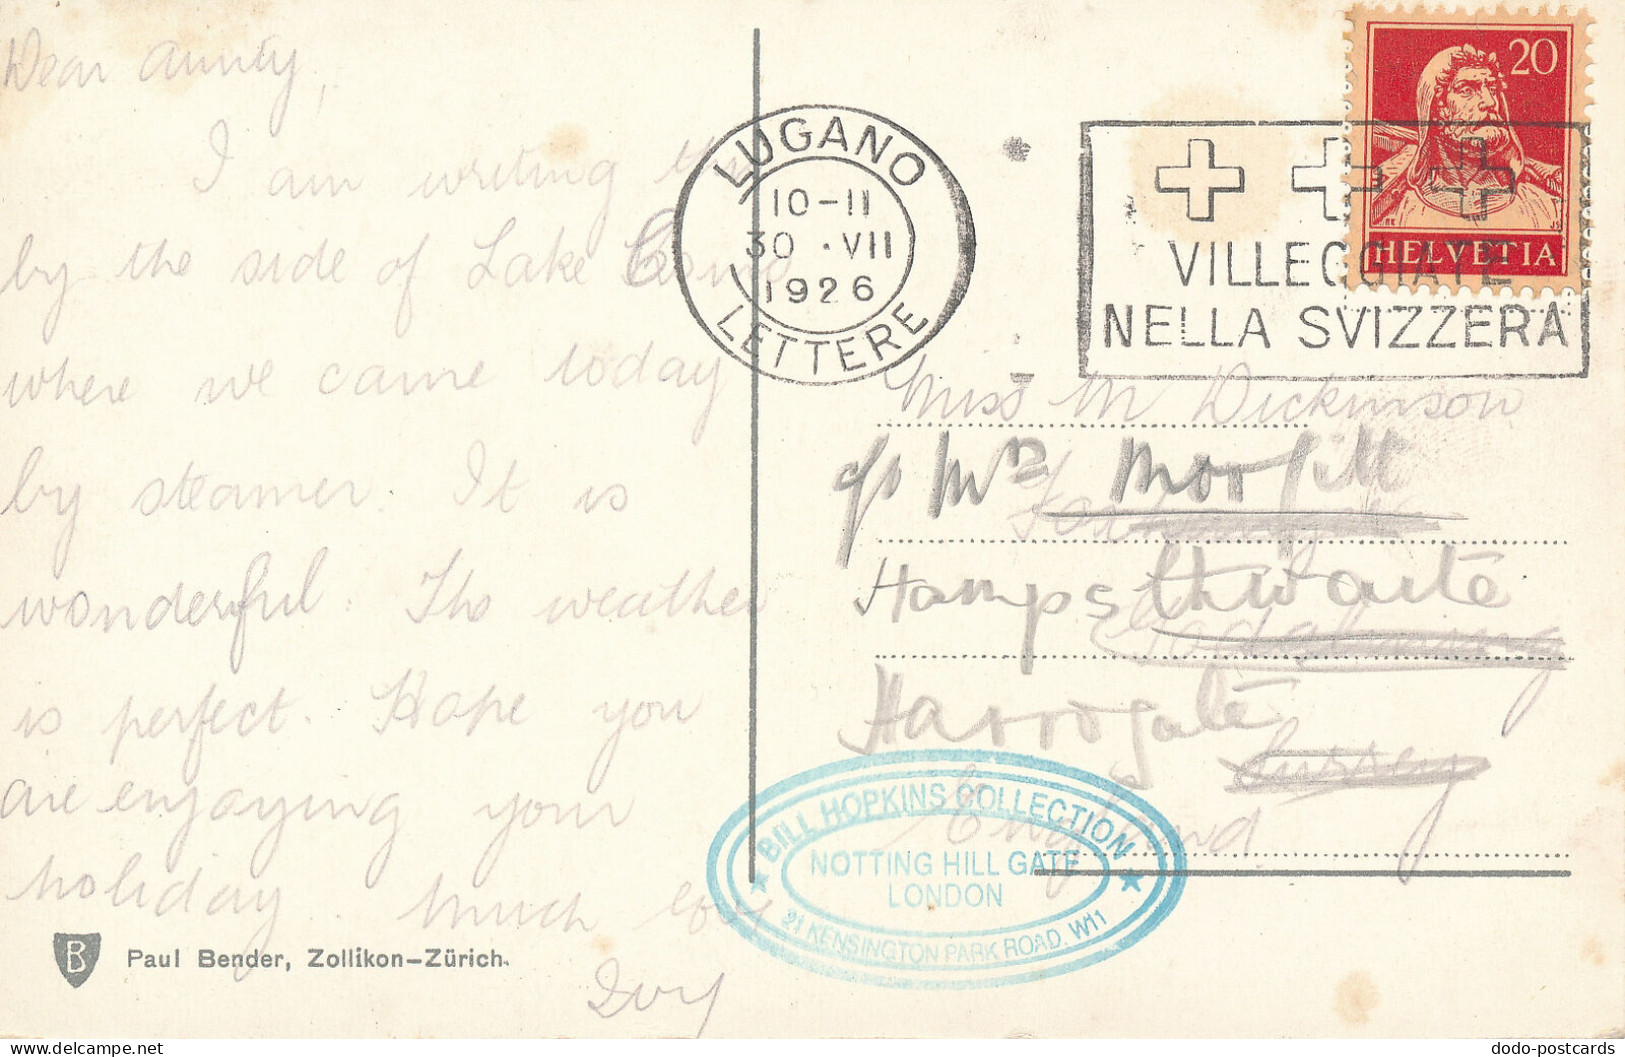 Dear Aunty,
I am writing this
by the side of Lake Como
where we came today
by steamer. It is
wonderful. The weather
is perfect. Hope you
are enjoying your
holiday. Much love
Ivy
B
Paul Bender, Zollikon-Zürich.
LUGANO
10-11
30 · VII
1926
LETTERE
VILLEGGIATE
NELLA SVIZZERA
20
HELVETIA
Miss M Dickinson
c/o Mrs Morfitt
Hampsthwaite
Godalming
Harrogate
Surrey
England
BILL HOPKINS COLLECTION
NOTTING HILL GATE
LONDON
21 KENSINGTON PARK ROAD. W11
delcampe.net
dodo-postcards